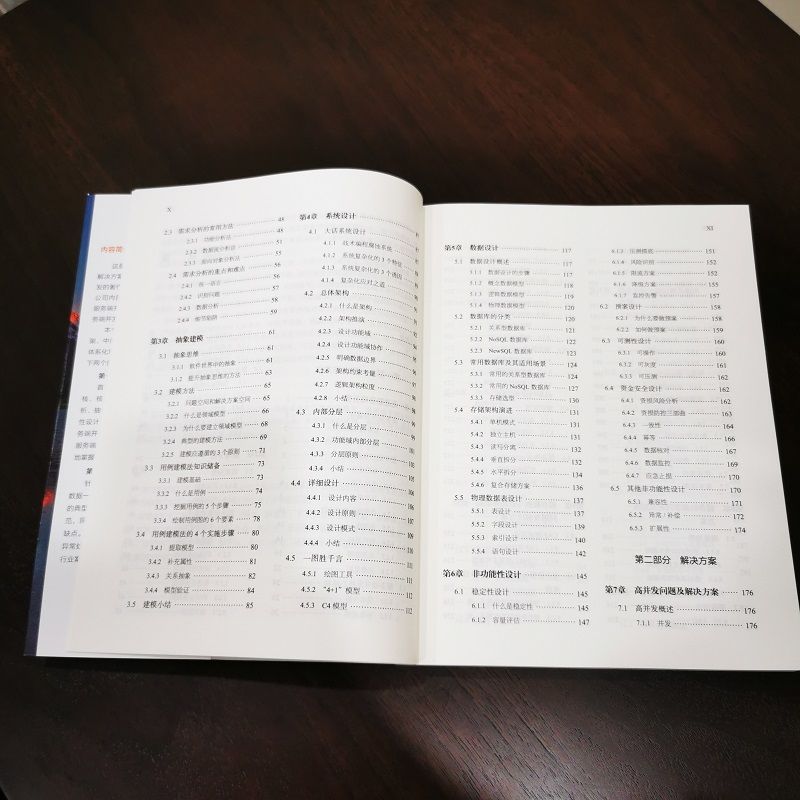 内容简
解决方案
发的衡
公司内
服务端
务端并
本
架、中
体系化
下两个
第
首
栈、核
析、抽
性设计
务端并
服务端
地掌握
第
针
数据一
的典型
范、异
缺点。
异常处
行业案
X
2.3 需求分析的常用方法 48
2.3.1 功能分析法 48
2.3.2 数据流分析法 51
2.3.3 面向对象分析法 55
2.4 需求分析的重点和难点 56
2.4.1 统一语言 56
2.4.2 识别问题 57
2.4.3 数据分析 58
2.4.4 细节陷阱 59
第3章 抽象建模 61
3.1 抽象思维 61
3.1.1 软件世界中的抽象 61
3.1.2 提升抽象思维的方法 63
3.2 建模方法 65
3.2.1 问题空间和解决方案空间 65
3.2.2 什么是领域模型 66
3.2.3 为什么要建立领域模型 68
3.2.4 典型的建模方法 69
3.2.5 建模应遵循的3个原则 71
3.3 用例建模法知识储备 73
3.3.1 建模基础 73
3.3.2 什么是用例 74
3.3.3 挖掘用例的5个步骤 75
3.3.4 绘制用例图的6个要素 78
3.4 用例建模法的4个实施步骤 80
3.4.1 提取模型 80
3.4.2 补充属性 81
3.4.3 关系抽象 82
3.4.4 模型验证 84
3.5 建模小结 85
第4章 系统设计
4.1 大话系统设计
4.1.1 技术编程腐蚀系统
4.1.2 系统复杂化的3个特征
4.1.3 系统复杂化的3个诱因
4.1.4 复杂化应对之道
4.2 总体架构
4.2.1 什么是架构
4.2.2 架构推演
4.2.3 设计功能域
4.2.4 设计功能域协作
4.2.5 明确数据边界
4.2.6 架构约束考量
4.2.7 逻辑架构粒度
4.2.8 小结
4.3 内部分层
4.3.1 什么是分层
4.3.2 功能域内部分层
4.3.3 分层原则
4.3.4 小结
4.4 详细设计
4.4.1 设计内容
4.4.2 设计原则
4.4.3 设计模式
4.4.4 小结
4.5 一图胜千言 111
4.5.1 绘图工具 111
4.5.2 “4+1”模型 111
4.5.3 C4 模型 112
XI
第5章 数据设计 117
5.1 数据设计概述 117
5.1.1 数据设计的步骤 118
5.1.2 概念数据模型 118
5.1.3 逻辑数据模型 119
5.1.4 物理数据模型 120
5.2 数据库的分类 121
5.2.1 关系型数据库 121
5.2.2 NoSQL 数据库 122
5.2.3 NewSQL 数据库 123
5.3 常用数据库及其适用场景 124
5.3.1 常用的关系型数据库 124
5.3.2 常用的 NoSQL 数据库 127
5.3.3 存储选型 130
5.4 存储架构演进 131
5.4.1 单机模式 131
5.4.2 独立主机 131
5.4.3 读写分离 132
5.4.4 垂直拆分 132
5.4.5 水平拆分 134
5.4.6 复合存储方案 136
5.5 物理数据表设计 137
5.5.1 表设计 137
5.5.2 字段设计 139
5.5.3 索引设计 140
5.5.4 语句设计 142
第6章 非功能性设计 145
6.1 稳定性设计 145
6.1.1 什么是稳定性 145
6.1.2 容量评估 147
6.1.3 压测摸底 151
6.1.4 风险识别 152
6.1.5 限流方案 152
6.1.6 降级方案 155
6.1.7 监控告警 157
6.2 预案设计 158
6.2.1 为什么要做预案 158
6.2.2 如何做预案 159
6.3 可测性设计 160
6.3.1 可操作 160
6.3.2 可灰度 161
6.3.3 可压测 162
6.4 资金安全设计 162
6.4.1 资损风险分析 162
6.4.2 资损防控三部曲 163
6.4.3 一致性 164
6.4.4 幂等 166
6.4.5 数据核对 167
6.4.6 数据监控 169
6.4.7 应急止损 170
6.5 其他非功能性设计 170
6.5.1 兼容性 171
6.5.2 异常/补偿 172
6.5.3 扩展性 174
第二部分 解决方案
第7章 高并发问题及解决方案 176
7.1 高并发概述 176
7.1.1 并发 176